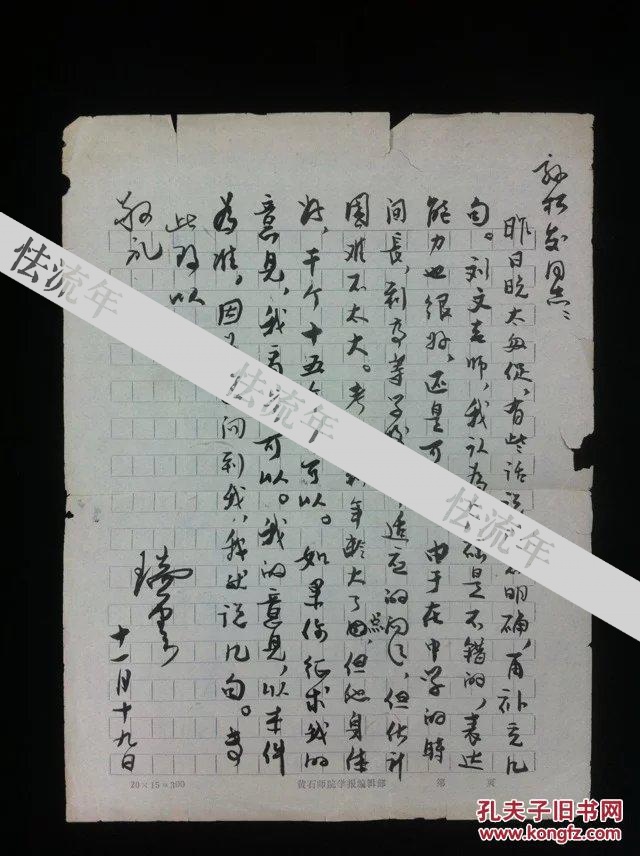 同志:
昨日晚太匆促,有些话说 不明确,再补充几
句。刘文 师,我认为 是不错的,表达
能力也很好,还是可 由于在中学的时
间长,到高等学校 适应的问题,但估计
困难不太大。考 到年龄大了点,但他身体
好,干个十五 年 可以。如果你征求我的
意见,我看 可以。我的意见,以本件
为准。因 问到我,我就说几句。专
此致以
敬礼
十一月十九日
20×15=300
黄石师院学报编辑部
第 页
怯流年
怯流年
怯流年
孔夫子旧书网
www.kongfz.com